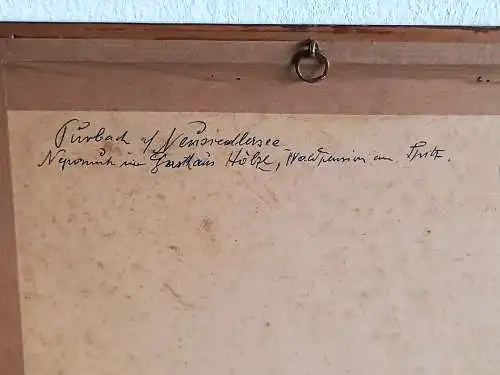 Purbach a/ Neusiedlersee
Nepomuk im Gasthaus Hölzl, Waldpension am Spitz.